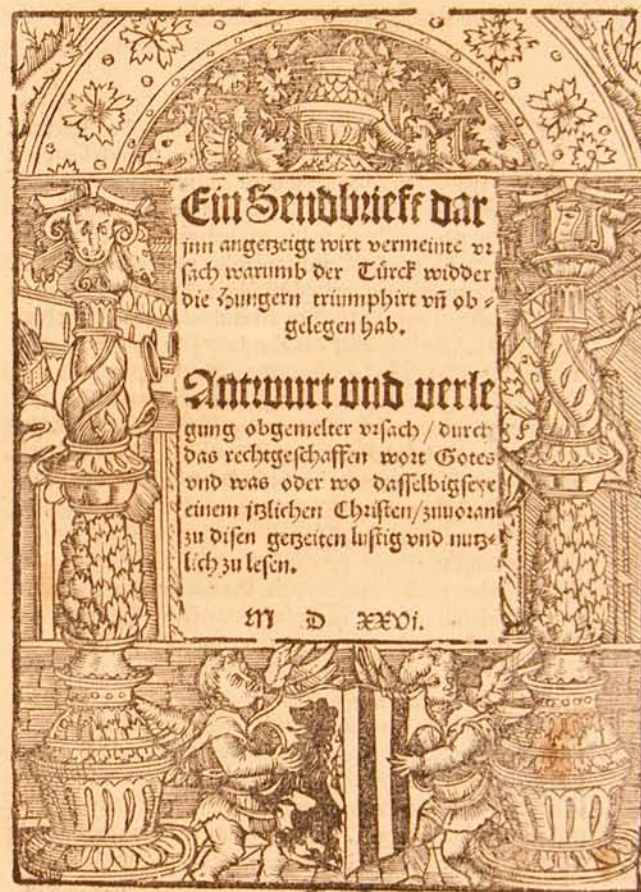 Ein Sendbrieff dar
jnn angetzeigt wirt vermeinte vr
sach warumb der Türck widder
die Hungern triumphirt vn̄ ob⸗
gelegen hab.
Antwurt vnd verle
gung obgemelter vrsach / durch
das rechtgeschaffen wort Gotes
vnd was oder wo dasselbig seye
einem jtzlichen Christen / zuuoran
zu disen getzeiten lustig vnd nutz⸗
lich zu lesen.
M D XXVi.